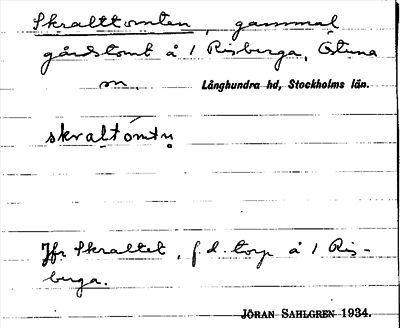 Skralttomten, gammal
gårdstomt å 1 Risberga, Östuna
sn. Långhundra hd, Stockholms län.
skraltòmtn̥
Jfr Skraltet, f.d. torp å 1 Ris-
berga.
JÖRAN SAHLGREN 1934.